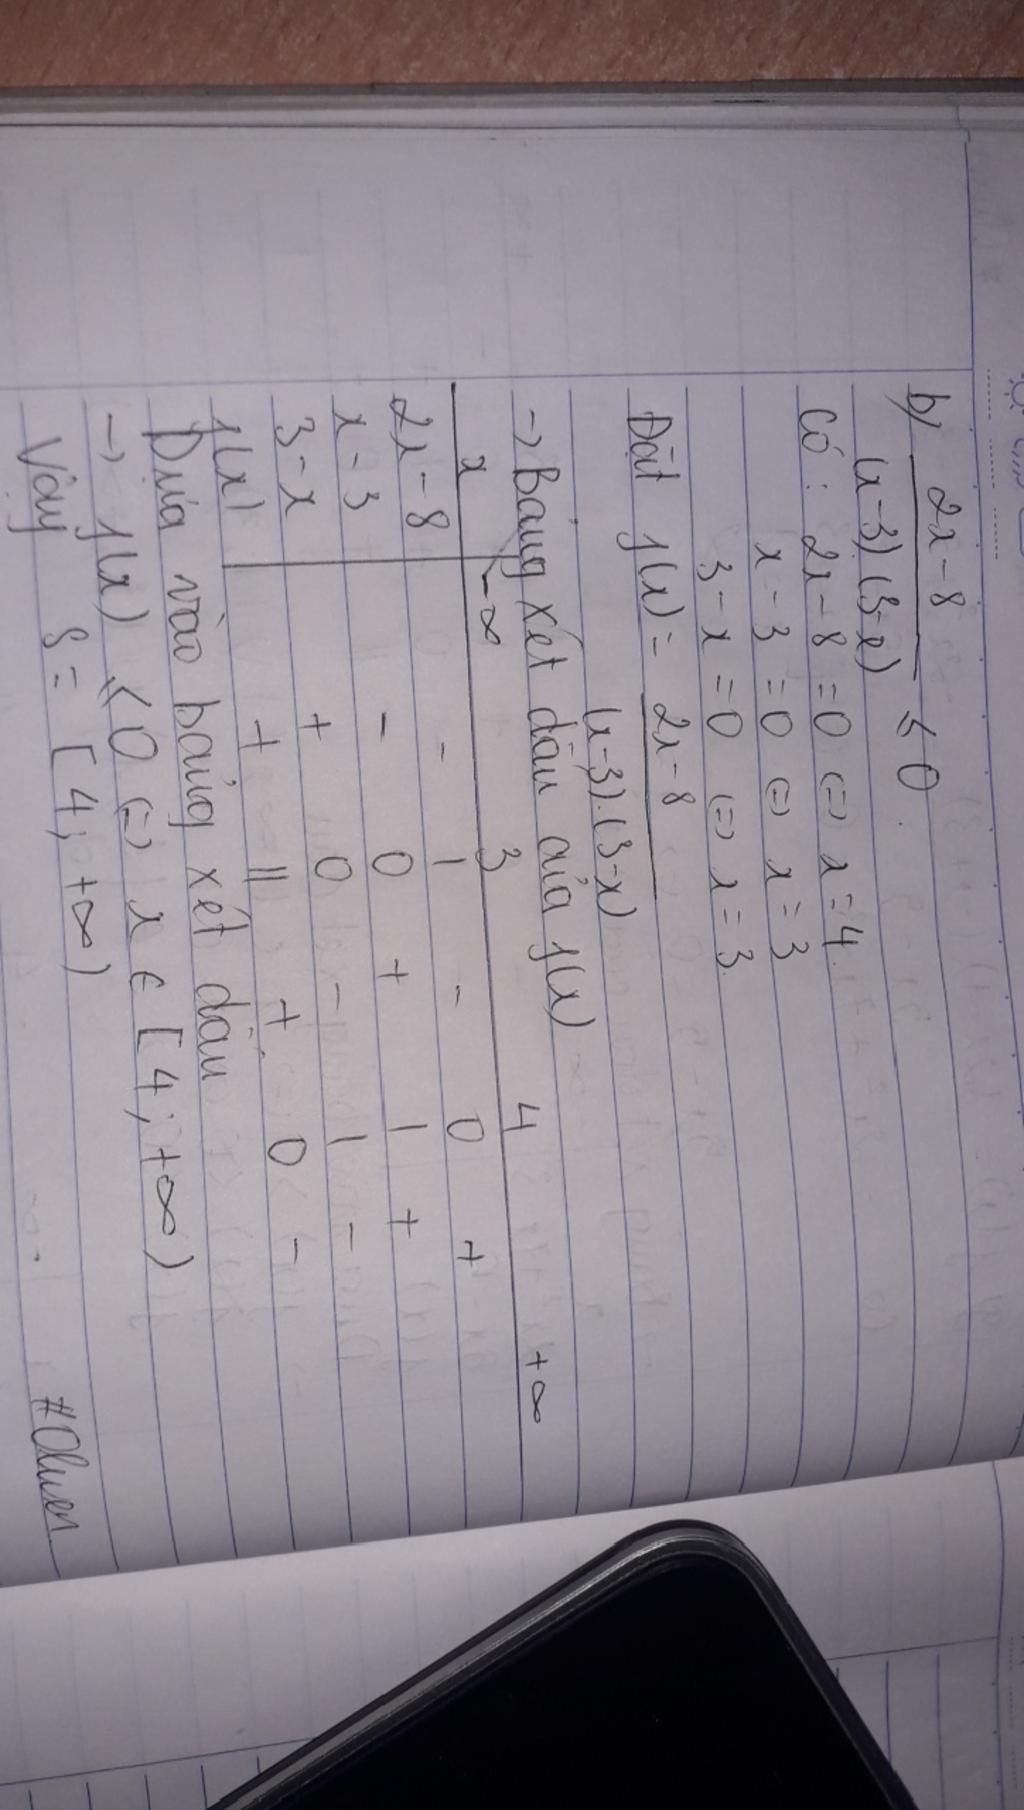 b) 2x-8
(x-3)(3-x) ≤ 0.
Có: 2x-8 = 0 (=) x = 4.
x-3 = 0 (=) x = 3
3-x = 0 (=) x = 3.
Đặt f(x) = 2x-8
(x-3).(3-x)
-> Bảng xét dấu của f(x)
x -∞ 3 4 +∞
2x-8 - | - 0 +
x-3 - 0 + | +
3-x + 0 - | -
f(x) + || + 0 -
Dựa vào bảng xét dấu
-> f(x) ≤ 0 (=) x ∈ [4; +∞)
Vậy S = [4; +∞)
#Olwen